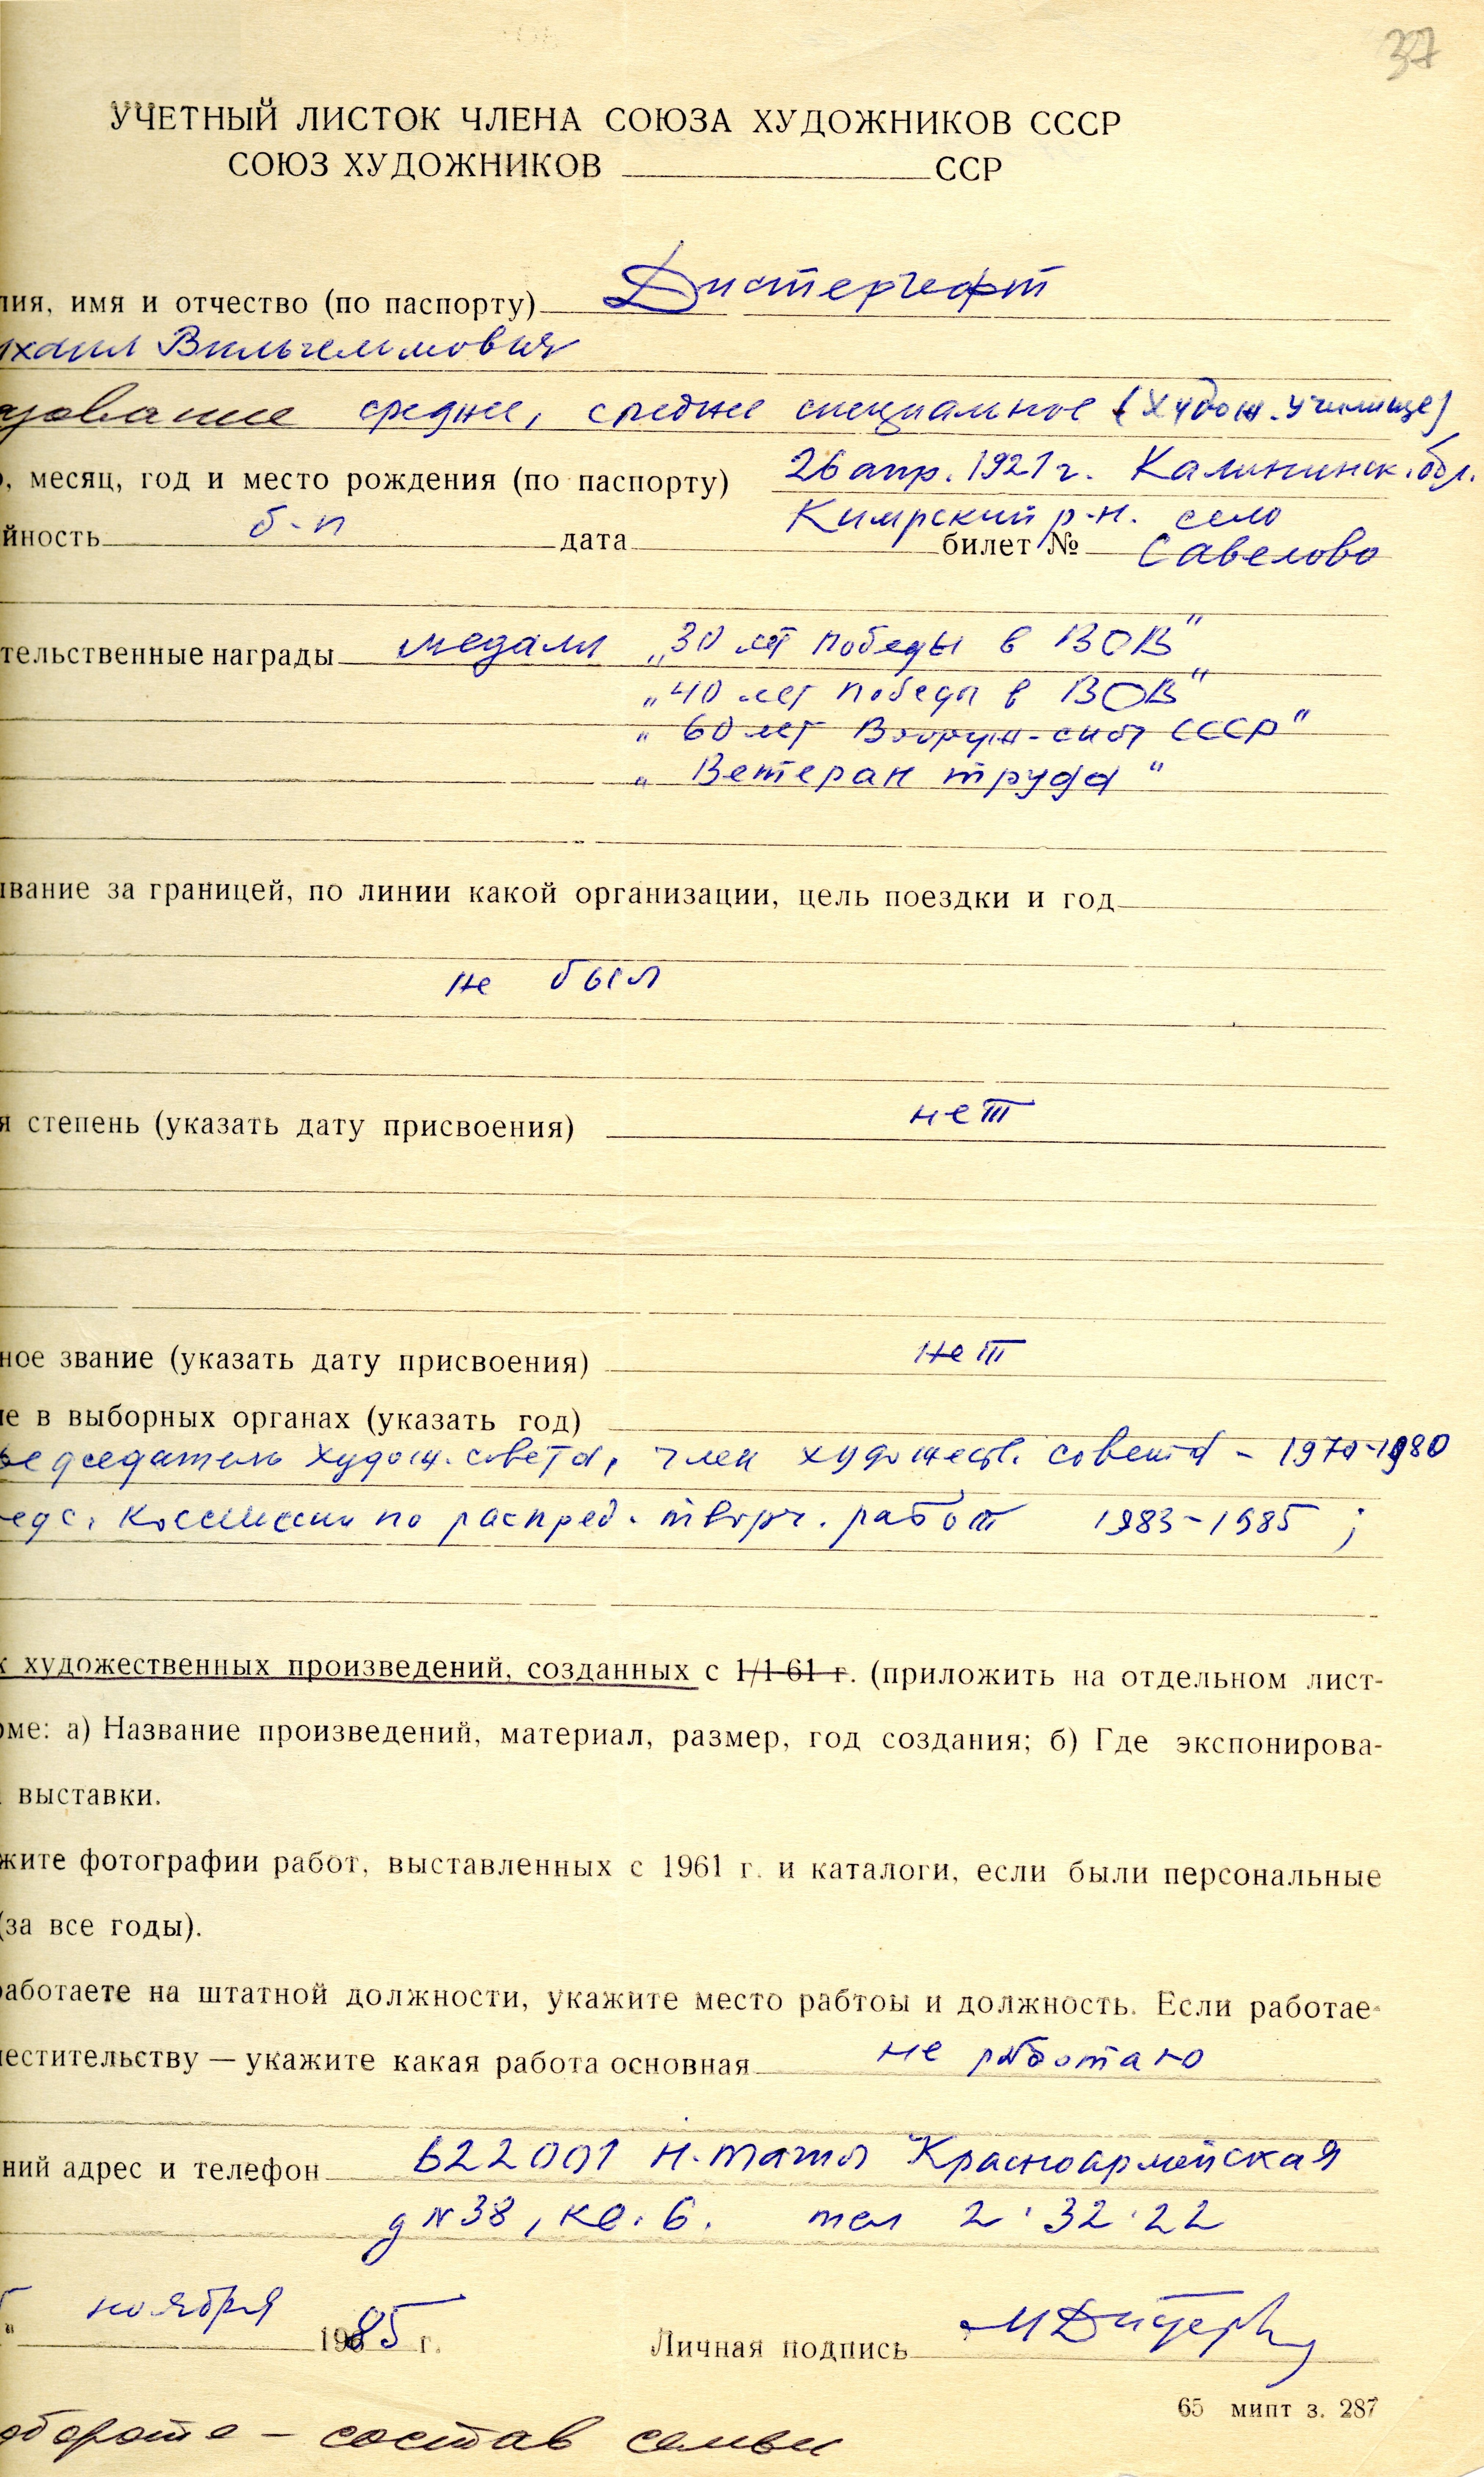 37
УЧЕТНЫЙ ЛИСТОК ЧЛЕНА СОЮЗА ХУДОЖНИКОВ СССР
СОЮЗ ХУДОЖНИКОВ ССР
лия, имя и отчество (по паспорту) Дистергефт
ихаил Вильгельмович
азование среднее, среднее специальное (Худож. училище)
о, месяц, год и место рождения (по паспорту) 26 апр. 1921 г. Калининск. обл.
Кимрский р-н. село
йность б-п дата билет № Савелово
тельственные награды медали „30 лет победы в ВОВ"
„40 лет победы в ВОВ"
„60 лет Вооруж. сил СССР"
„Ветеран труда"
ывание за границей, по линии какой организации, цель поездки и год
не был
я степень (указать дату присвоения) нет
ное звание (указать дату присвоения) нет
ие в выборных органах (указать год)
редседатель худож. совета, член художеств. совета - 1970-1980
едс. Комиссии по распред. творч. работ 1983-1985;
к художественных произведений, созданных с 1/1-61 г. (приложить на отдельном лист-
рме: а) Название произведений, материал, размер, год создания; б) Где экспонирова-
выставки.
жите фотографии работ, выставленных с 1961 г. и каталоги, если были персональные
(за все годы).
работаете на штатной должности, укажите место рабтоы и должность. Если работае-
местительству — укажите какая работа основная не работаю
ний адрес и телефон 622001 Н.Тагил Красноармейская
д N 38, кв. 6. тел 2-32-22
" ноября 1985 г. Личная подпись
65 мипт з. 287
обороте - состав семьи